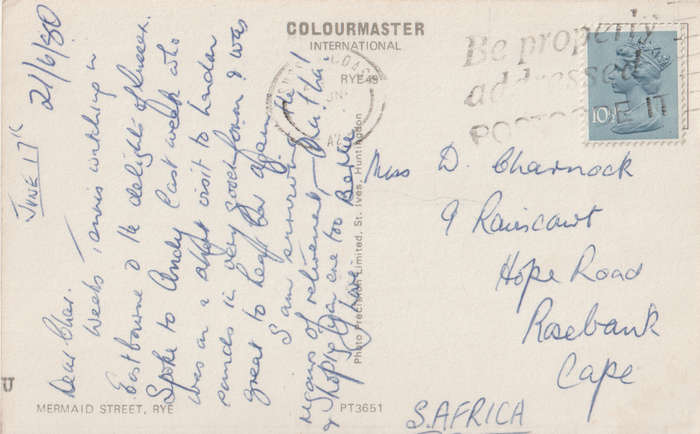 COLOURMASTER
INTERNATIONAL
RYE 49
Be properly
addressed
POSTCODE IT
10½P
JUNE 17th
21/6/80
Dear Char.
Weeks Tennis watching in
Eastbourne & the delights of Sussex.
Spoke to Andy last week who
was on a short visit to London
sounds in very good form & was
great to hear him again.
I am surviving the
rigours of retirement, &
hoping you are too
Love
Miss D. Charnock
9 Raincourt
Hope Road
Rosebank
Cape
S. AFRICA
Photo Precision Limited, St. Ives, Huntingdon
U
MERMAID STREET, RYE
PT3651